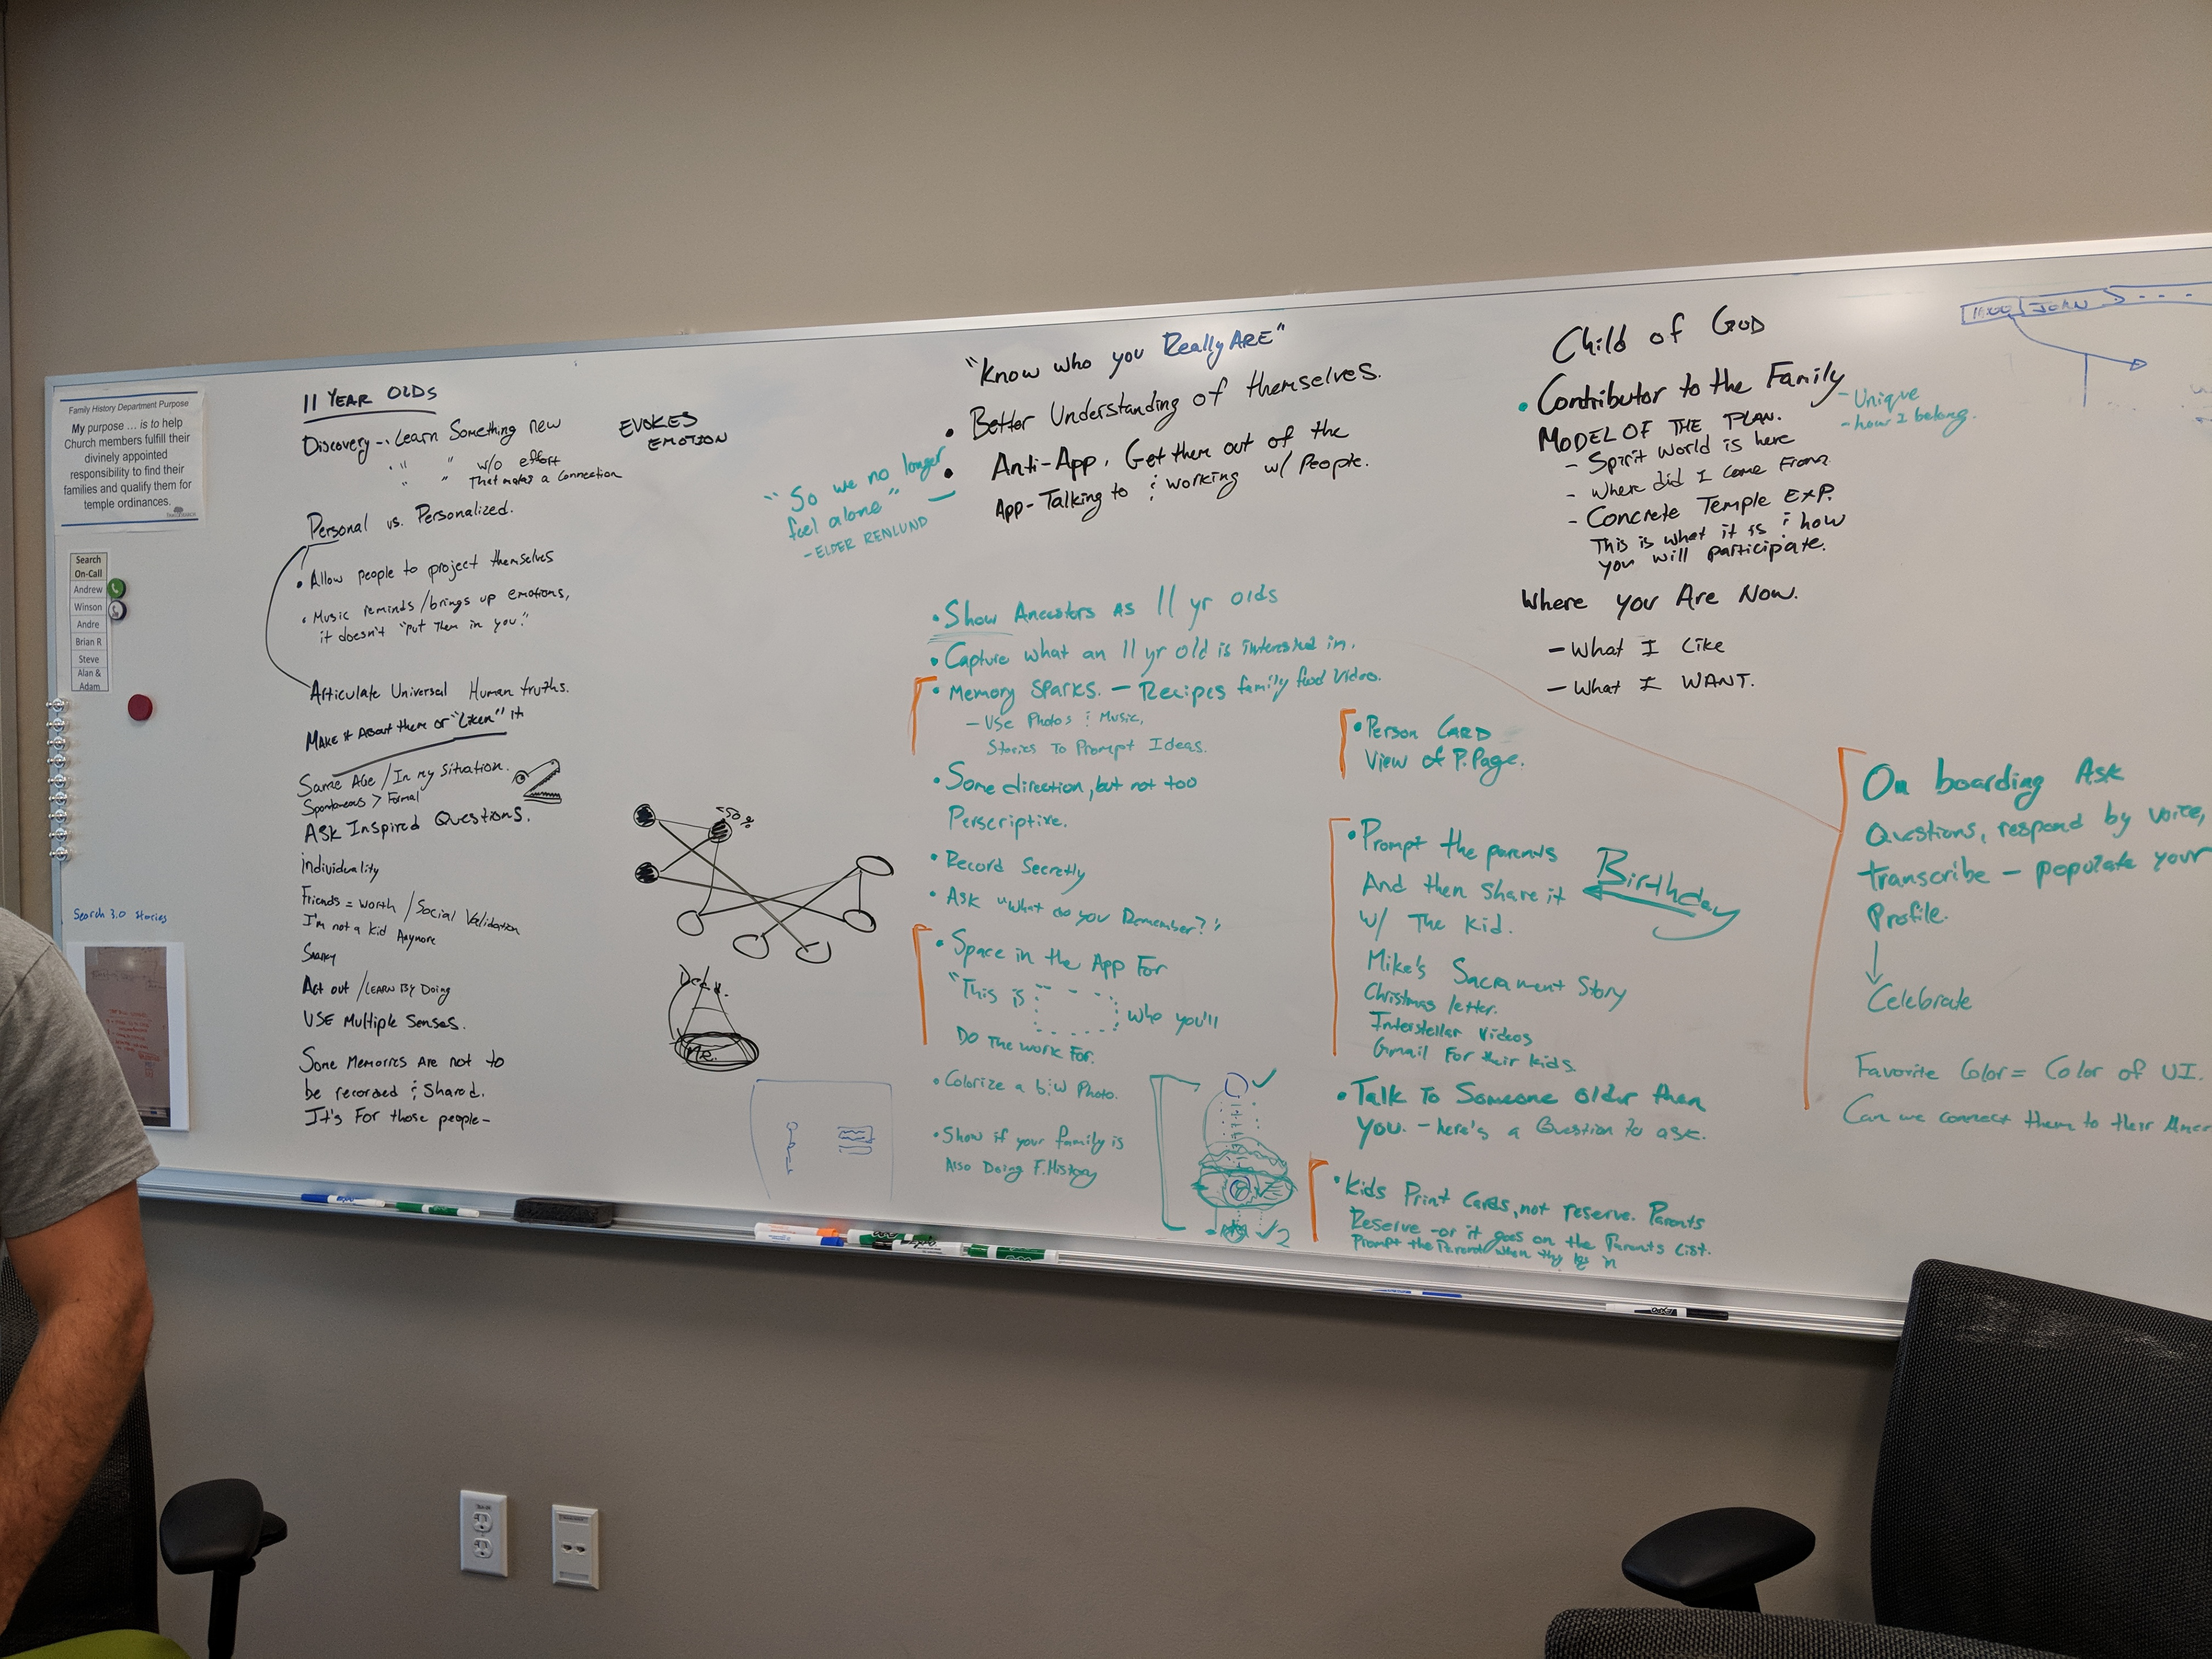 Family History Department Purpose
My purpose ... is to help
Church members fulfill their
divinely appointed
responsibility to find their
families and qualify them for
temple ordinances.
Search
On-Call
Andrew
Winson
Andre
Brian R
Steve
Alan &
Adam
Search 3.0 stories
11 YEAR OLDS
Discovery - Learn Something new
" " w/o effort
" " That makes a connection
EVOKES
EMOTION
Personal vs. Personalized.
• Allow people to project themselves
• Music reminds/brings up emotions,
it doesn't "put them in you."
Articulate Universal Human truths.
Make it About them or "Liken" it
Same Age / In my situation.
Spontaneous > Formal
ASK Inspired Questions.
individuality
Friends = worth / Social Validation
I'm not a kid Anymore
Snarky
Act out / LEARN BY Doing
USE Multiple Senses.
Some Memories Are not to
be recorded & Shared.
It's For those people-
Me.
"Know who you Really ARE"
• Better Understanding of themselves.
• Anti-App. Get them out of the
App - Talking to & working w/ People.
"So we no longer
feel alone" -
- ELDER RENLUND
• Show Ancestors as 11 yr olds
• Capture what an 11 yr old is interested in.
• Memory Sparks. - Recipes family food video.
- Use Photos & Music,
Stories To Prompt Ideas.
• Some direction, but not too
Perscriptive.
• Record Secretly
• Ask "What do you Remember?"
• Space in the App For
"This is who you'll
Do the work For.
• Colorize a b:w Photo.
• Show if your family is
Also Doing F.History
2
• Person CARD
View of P.Page.
• Prompt the parents
And then share it
w/ The kid.
Birthday
Mike's Sacrament Story
Christmas letter.
Interstellar Videos
Gmail For their kids
• Talk To Someone older than
you. - here's a Question to ask.
• Kids Print Cards, not reserve. Parents
Reserve - or it goes on the Parents List.
Prompt the Parents when they in
Child of GOD
• Contributor to the Family
- Unique
- how I belong.
MODEL OF THE PLAN.
- Spirit World is here
- Where did I come From?
- Concrete Temple EXP.
This is what it is & how
you will participate.
Where you Are Now.
- What I Like
- What I WANT.
JOHN
On boarding Ask
Questions, respond by voice,
transcribe - populate your
Profile.
Celebrate
Favorite Color = Color of UI.
Can we connect them to their